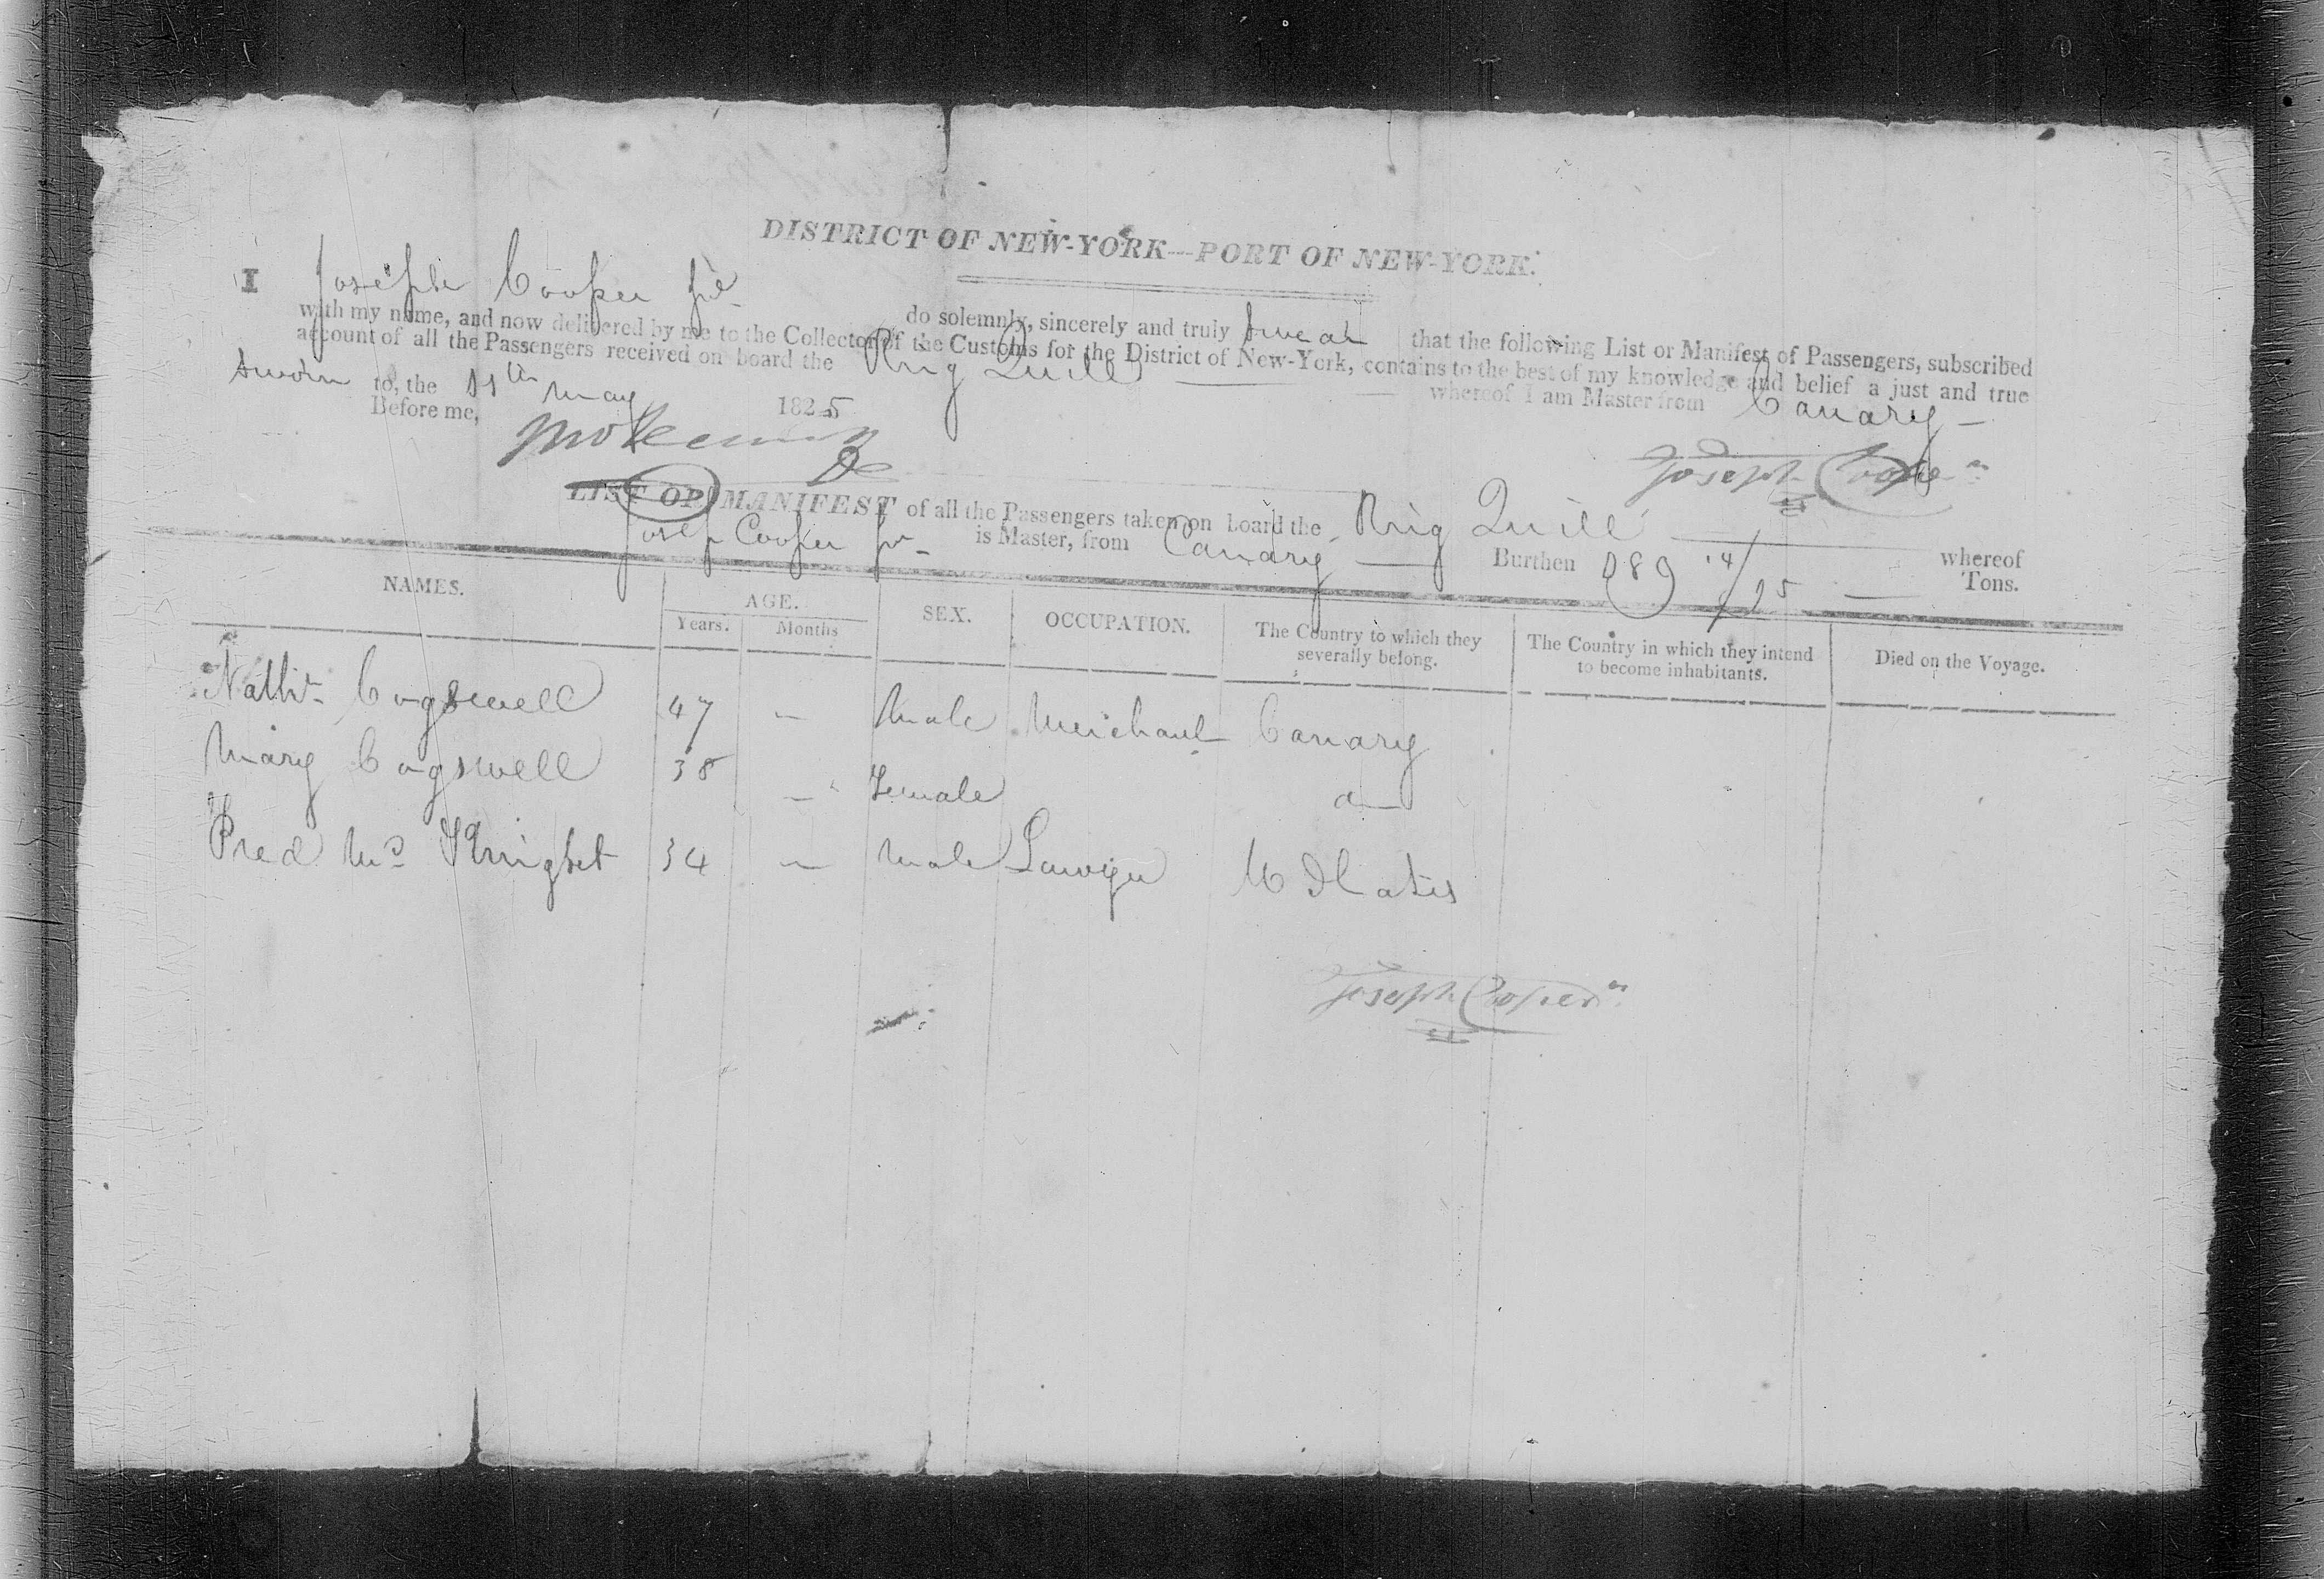 DISTRICT OF NEW-YORK---PORT OF NEW-YORK.
I Joseph Cooper Jr do solemnly, sincerely and truly swear that the following List or Manifest of Passengers, subscribed
with my name, and now delivered by me to the Collector of the Customs for the District of New-York, contains to the best of my knowledge and belief a just and true
account of all the Passengers received on board the Brig Quill whereof I am Master from Canary
Sworn to, the 11th May 1825
Before me,
Joseph Cooper Jr
LIST OR MANIFEST of all the Passengers taken on board the Brig Quill whereof
Joseph Cooper Jr is Master, from Canary Burthen 189 14/95 Tons.
NAMES. AGE. SEX. OCCUPATION. The Country to which they severally belong. The Country in which they intend to become inhabitants. Died on the Voyage.
Years. Months
Nathl Cogswell 47 — Male Merchant Canary
Mary Cogswell 38 — Female do
Fred Mc Knight 34 — Male Lawyer U States
Joseph Cooper Jr